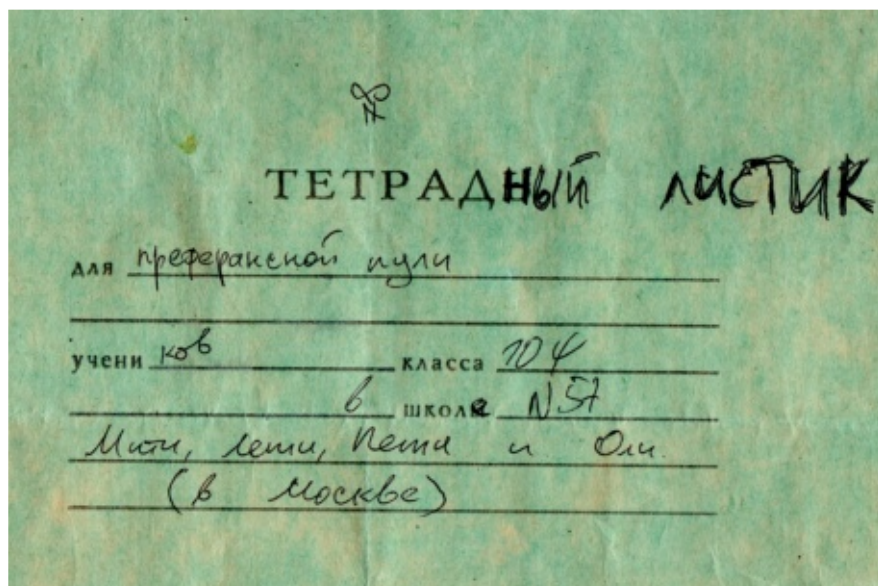 ТЕТРАДНЫЙ ЛИСТИК
для преферансной пули
учени ков класса 10
в школе N 57
Мити, Пети и Оли
(в Москве)